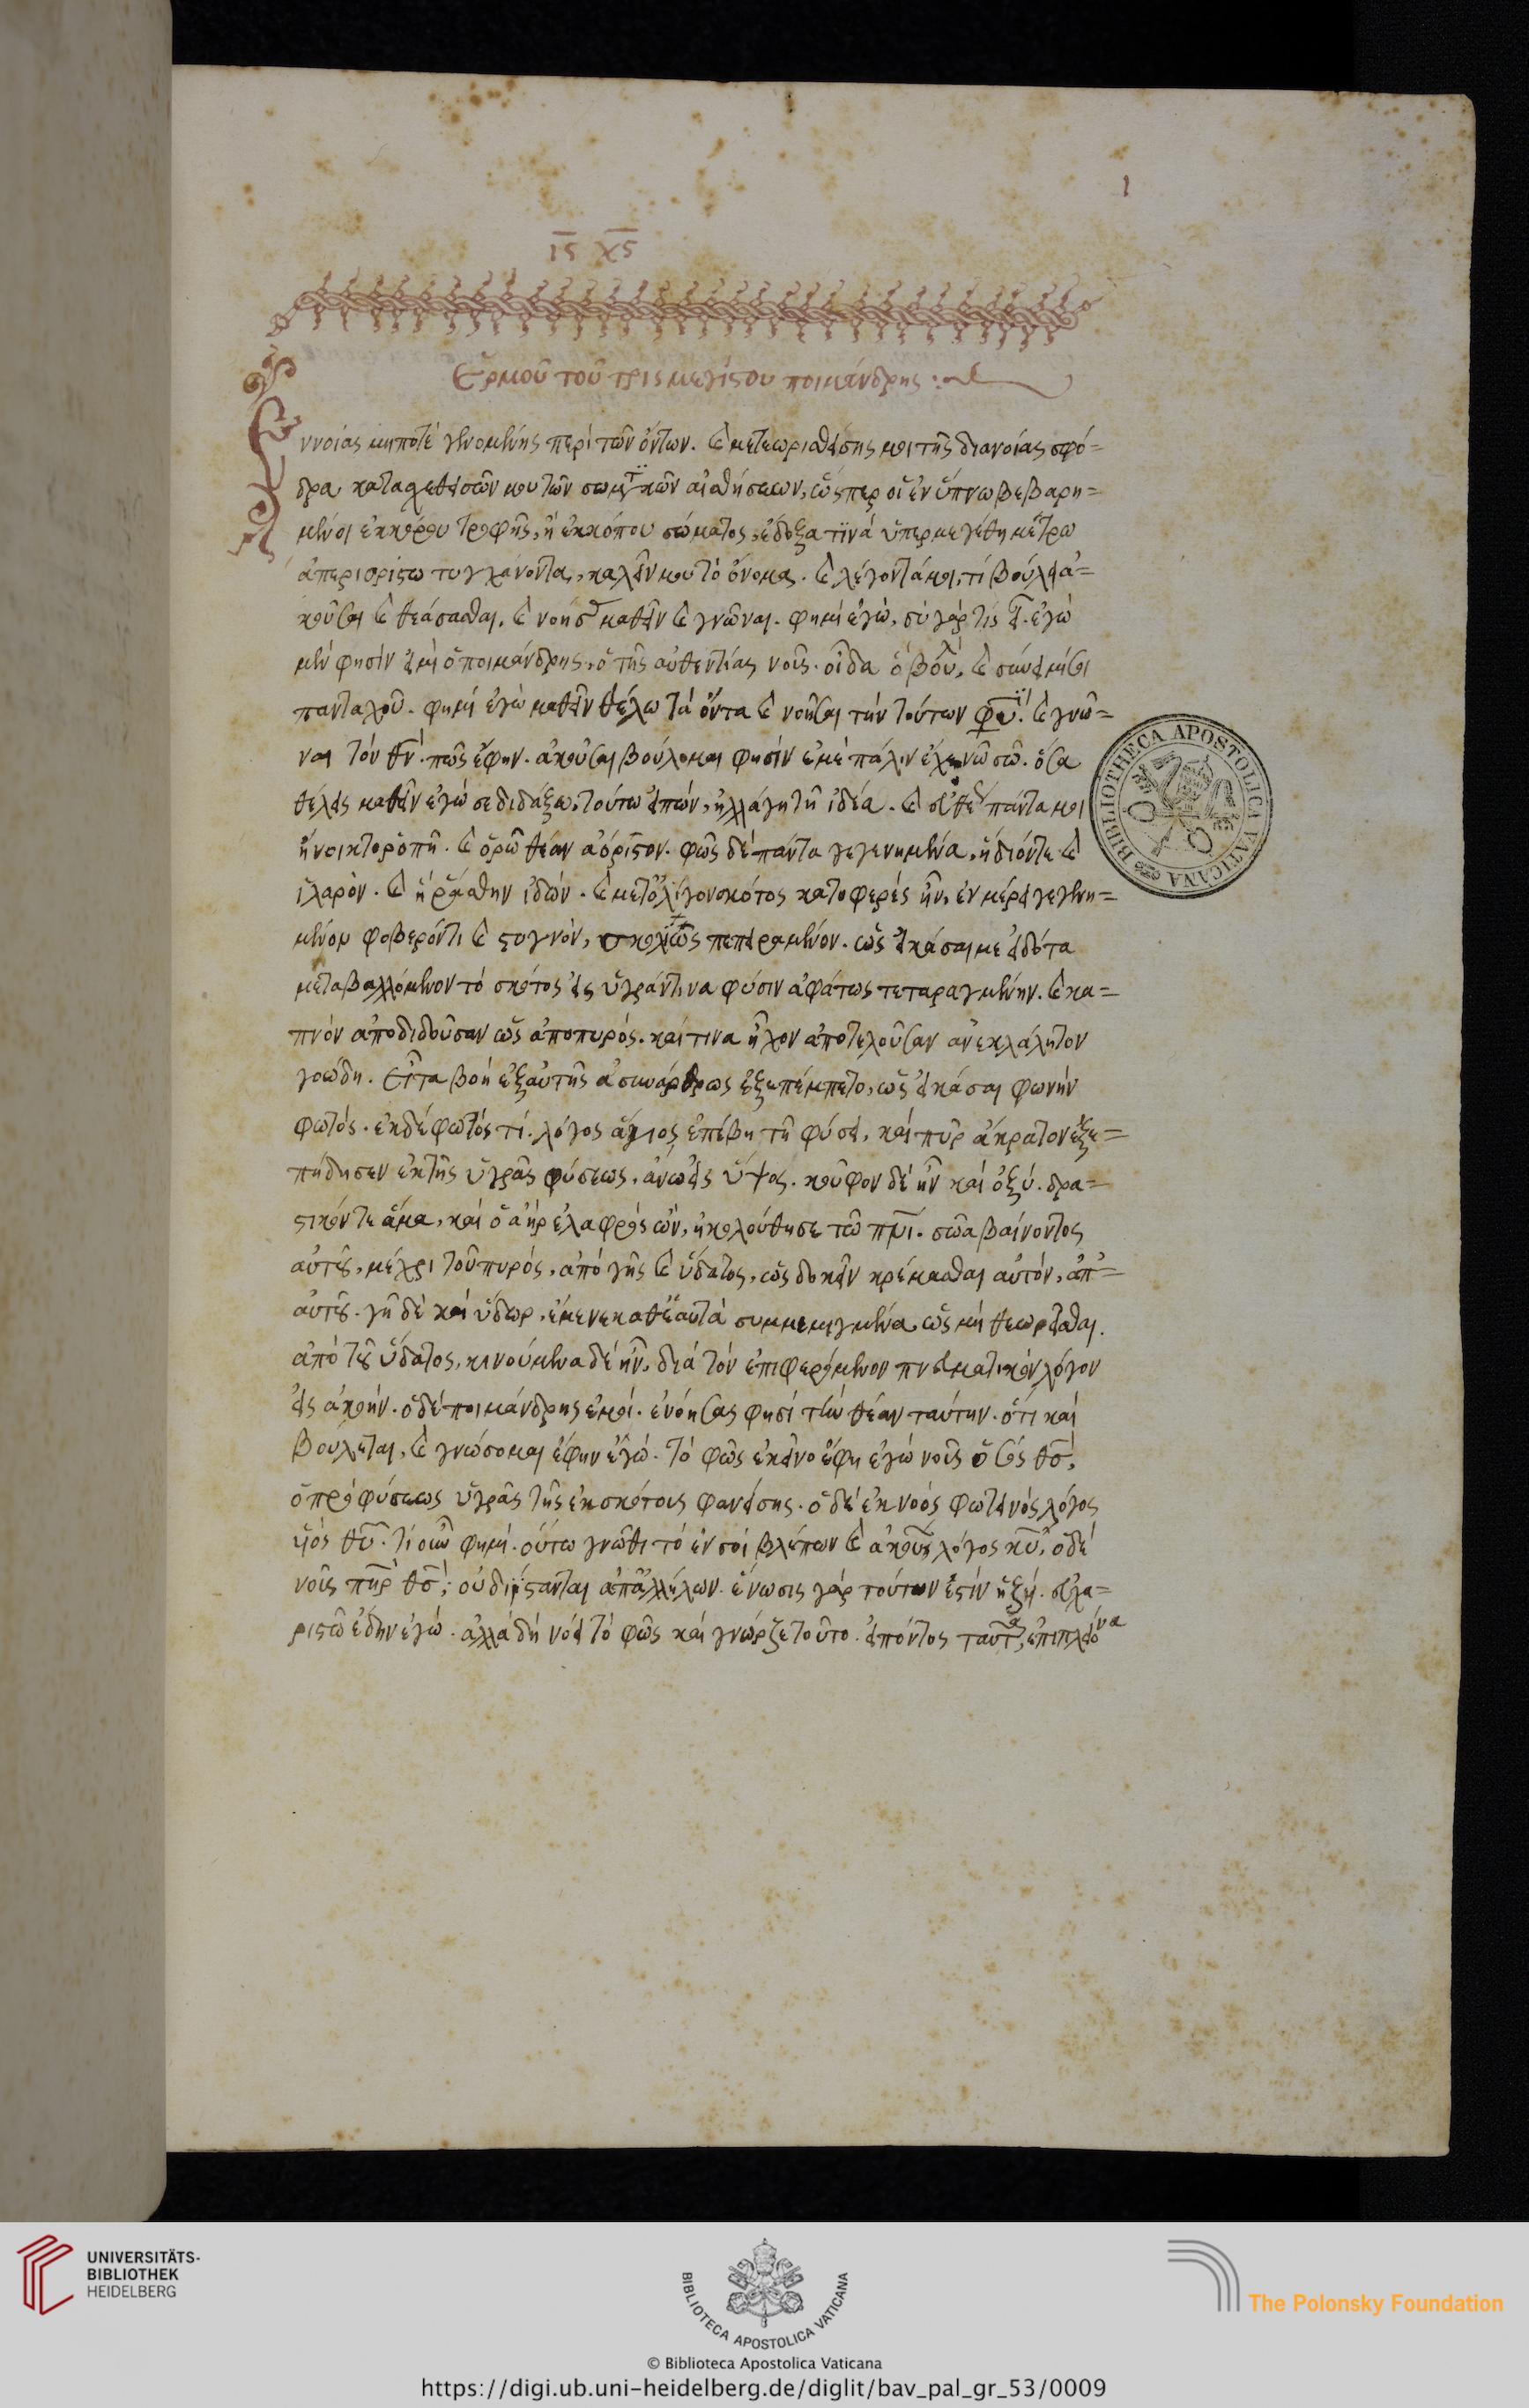 1
ις χς
Ἑρμοῦ τοῦ τρισμεγίστου ποιμάνδρης :
Ἐννοίας μηποτέ γενομένης περὶ τῶν ὄντων. καὶ μετεωρισθείσης μοι τῆς διανοίας σφό=
δρα κατασχεθεισῶν μου τῶν σωμτικῶν αἰσθήσεων, ὥσπερ οἱ ἐν ὕπνω βεβαρη=
μένοι ἐκ κόρου τροφῆς, ἢ ἐκ κόπου σώματος, ἔδοξα τινὰ ὑπερμεγέθη μέτρω
ἀπεριορίστω τυγχάνοντα, καλεῖν μου τὸ ὄνομα. καὶ λέγοντά μοι, τί βούλει ἀ=
κοῦσαι καὶ θεάσασθαι, καὶ νοήσ μαθεῖν καὶ γνῶναι. φημὶ ἐγὼ, σὺ γὰρ τίς εἶ. ἐγὼ
μὲν φησὶν εἰμὶ ὁ ποιμάνδρης, ὁ τῆς αὐθεντίας νοῦς. οἶδα ὃ βούλ, καὶ σύνειμί σοι
πανταχοῦ. φημὶ ἐγὼ μαθεῖν θέλω τὰ ὄντα καὶ νοῆσαι τὴν τούτων φύ. καὶ γνῶ=
ναι τὸν θν. πῶς ἔφην. ἀκοῦσαι βούλομαι φησὶν ἐμὲ πάλιν ἔχε νῶ σῶ. ὅσα
θέλεις μαθεῖν ἐγώ σε διδάξω, τούτω εἰπὼν, ἠλλάγη τῆ ἰδέα. καὶ εὐθε πάντα μοι
ἤνοικτο ῥοπῆ. καὶ ὁρῶ θέαν ἀόριστον. φῶς δὲ πάντα γεγενημένα, ἥδιόν τε καὶ
ἱλαρὸν. καὶ ἠράσθην ἰδών. καὶ μετ' ὀλίγον σκότος κατοφερές ἦν, ἐν μέρει γεγενη=
μένον φοβερόν τι καὶ στυγνὸν, σκολιῶς πεπειραμένον. ὡς εἰκάσαι με εἰδότα
μεταβαλλόμενον τὸ σκότος εἰς ὑγράν τινα φύσιν ἀφάτως τεταραγμένην. καὶ κα=
πνὸν ἀποδιδοῦσαν ὡς ἀπὸ πυρός. καί τινα ἦχον ἀποτελοῦσαν ἀνεκλάλητον
γοώδη. εἶτα βοὴ ἐξ αὐτῆς ἀσυνάρθρως ἐξεπέμπετο, ὡς εἰκάσαι φωνὴν
φωτός. ἐκ δὲ φωτός τί. λόγος ἅγιος ἐπέβη τῆ φύσει, καὶ πῦρ ἄκρατον ἐξε=
πήδησεν ἐκ τῆς ὑγρᾶς φύσεως, ἄνω εἰς ὕψος. κοῦφον δὲ ἦν καὶ ὀξύ. δρα=
στικόν τε ἅμα, καὶ ὁ ἀὴρ ἐλαφρὸς ὢν, ἠκολούθησε τῶ πνι. ἀναβαίνοντος
αὐτοῦ, μέχρι τοῦ πυρός, ἀπὸ γῆς καὶ ὕδατος, ὡς δοκεῖν κρέμασθαι αὐτὸν, ἀπ'=
αὐτοῦ. γῆ δὲ καὶ ὕδωρ, ἔμενε καθ' ἑαυτὰ συμμεμιγμένα, ὡς μὴ θεωρεῖσθαι.
ἀπὸ τοῦ ὕδατος, κινούμενα δὲ ἦν, διὰ τὸν ἐπιφερόμενον πνευματικὸν λόγον
εἰς ἀκοήν. ὁ δὲ ποιμάνδρης ἐμοί. ἐνόησας φησί τὴν θέαν ταύτην. ὅτι καὶ
βούλεται, καὶ γνώσομαι ἔφην ἐγώ. τὸ φῶς ἐκεῖνο ἔφη ἐγὼ νοῦς ὁ σὸς θς,
ὁ πρὸ φύσεως ὑγρᾶς τῆς ἐκ σκότους φανείσης. ὁ δὲ ἐκ νοὸς φωτεινὸς λόγος
υἱὸς θυ. τί οὖν φημί. οὕτω γνῶθι τὸ ἐν σοὶ βλέπων καὶ ἀκοῦον λόγος κυ, ὁ δὲ
νοῦς πηρ θς, οὐ διίστανται ἀπ' ἀλλήλων. ἕνωσις γὰρ τούτων ἐστὶν ἡ ζωή. εὐχα=
ριστῶ ἔφην ἐγώ. ἀλλὰ δὴ νόει τὸ φῶς καὶ γνώριζε τοῦτο. εἰπόντος ταῦτα, ἐπὶ πλείονα
BIBLIOTHECA APOSTOLICA VATICANA
UNIVERSITÄTS-
BIBLIOTHEK
HEIDELBERG
BIBLIOTECA APOSTOLICA VATICANA
© Biblioteca Apostolica Vaticana
The Polonsky Foundation
https://digi.ub.uni-heidelberg.de/diglit/bav_pal_gr_53/0009